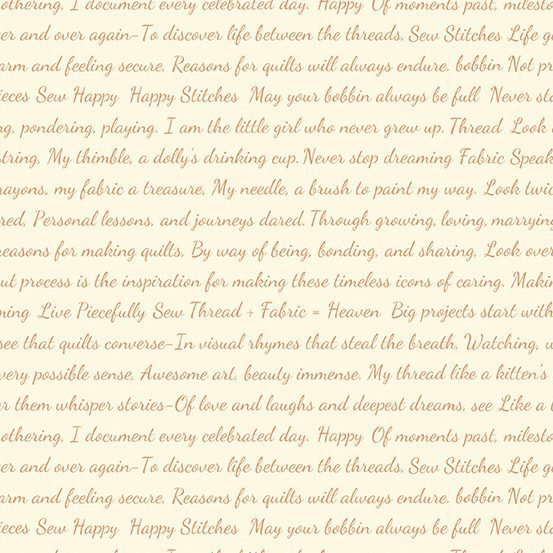 othering, I document every celebrated day. Happy Of moments past, milesto
er and over again-To discover life between the threads, Sew Stitches Life g
arm and feeling secure, Reasons for quilts will always endure. bobbin Not pr
ieces Sew Happy Happy Stitches May your bobbin always be full Never sto
ng, pondering, playing, I am the little girl who never grew up. Thread Look
string, My thimble, a dolly's drinking cup. Never stop dreaming Fabric Speak
rayons, my fabric a treasure, My needle, a brush to paint my way. Look twic
red, Personal lessons, and journeys dared. Through growing, loving, marrying
reasons for making quilts, By way of being, bonding, and sharing, Look over
ut process is the inspiration for making these timeless icons of caring. Makin
ming Live Piecefully Sew Thread + Fabric = Heaven Big projects start with
see that quilts converse-In visual rhymes that steal the breath, Watching, w
very possible sense, Awesome art, beauty immense. My thread like a kitten's
r them whisper stories-Of love and laughs and deepest dreams, see Like a
othering, I document every celebrated day. Happy Of moments past, milesto
er and over again-To discover life between the threads, Sew Stitches Life g
arm and feeling secure, Reasons for quilts will always endure. bobbin Not pr
ieces Sew Happy Happy Stitches May your bobbin always be full Never sto